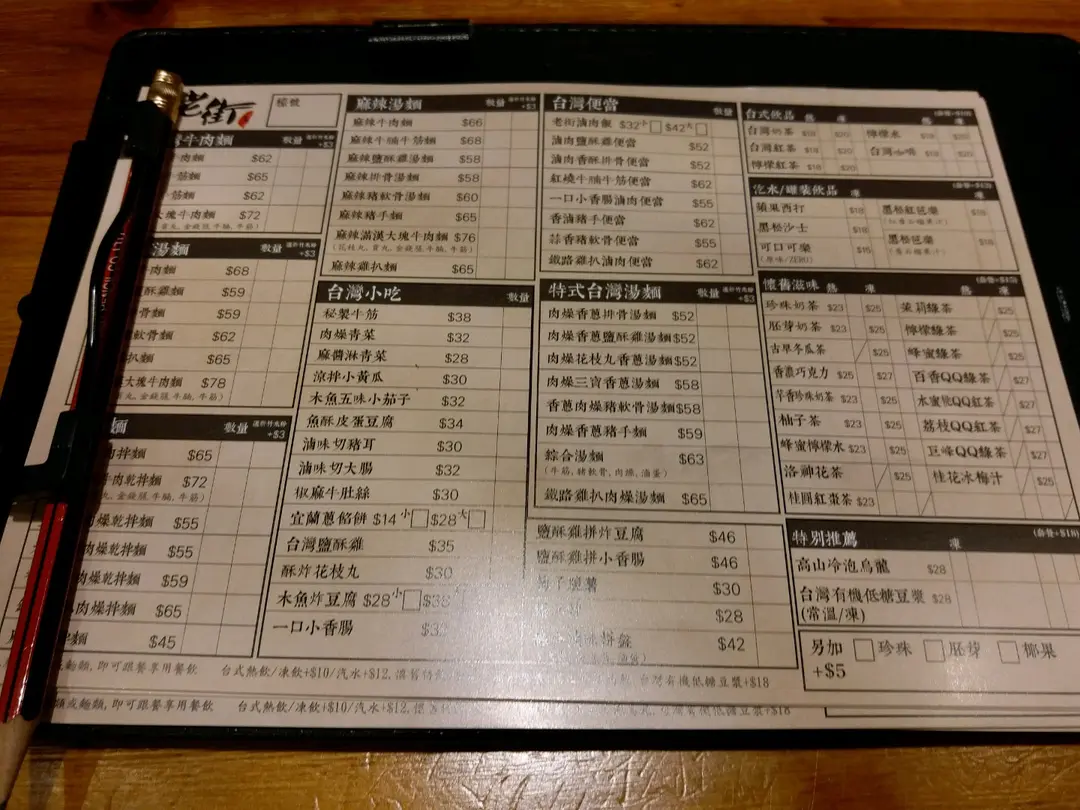 老街
檯號
牛肉麵 數量 +$3
肉麵 $62
筋麵 $65
筋麵 $62
大塊牛肉麵 $72
湯麵 數量 +$3
牛肉麵 $68
酥雞麵 $59
骨麵 $59
軟骨麵 $62
扒麵 $65
大塊牛肉麵 $78
麵 數量 +$3
肉拌麵 $65
牛肉乾拌麵 $72
肉燥乾拌麵 $55
肉燥乾拌麵 $55
肉燥拌麵 $59
肉燥拌麵 $65
拌麵 $45
麻辣湯麵 數量 +$3
麻辣牛肉麵 $66
麻辣牛腩牛筋麵 $68
麻辣鹽酥雞湯麵 $58
麻辣排骨湯麵 $58
麻辣豬軟骨湯麵 $60
麻辣豬手麵 $65
麻辣滿漢大塊牛肉麵 $76
(花枝丸, 貢丸, 金錢𦟌, 牛腩, 牛筋)
麻辣雞扒麵 $65
台灣小吃 數量
秘製牛筋 $38
肉燥青菜 $32
麻醬淋青菜 $28
涼拌小黃瓜 $30
木魚五味小茄子 $32
魚酥皮蛋豆腐 $34
滷味切豬耳 $30
滷味切大腸 $32
椒麻牛肚絲 $30
宜蘭蔥餡餅 $14小 $28大
台灣鹽酥雞 $35
酥炸花枝丸 $30
木魚炸豆腐 $28小 $38大
一口小香腸 $32
台灣便當 數量
老街滷肉飯 $32小 $42大
滷肉鹽酥雞便當 $52
滷肉香酥排骨便當 $52
紅燒牛腩牛筋便當 $62
一口小香腸滷肉便當 $55
香滷豬手便當 $62
蒜香豬軟骨便當 $55
鐵路雞扒滷肉便當 $62
特式台灣湯麵 數量 +$3
肉燥香蔥排骨湯麵 $52
肉燥香蔥鹽酥雞湯麵 $52
肉燥花枝丸香蔥湯麵 $52
肉燥三寶香蔥湯麵 $58
香蔥肉燥豬軟骨湯麵 $58
肉燥香蔥豬手麵 $59
綜合湯麵 $63
(牛筋, 豬軟骨, 肉燥, 滷蛋)
鐵路雞扒肉燥湯麵 $65
鹽酥雞拼炸豆腐 $46
鹽酥雞拼小香腸 $46
$30
$28
$42
台式飲品 熱 凍 熱 凍 (套餐+$10)
台灣奶茶 $18 $20 檸檬水 $18 $20
台灣紅茶 $18 $20 台灣咖啡 $18 $20
檸檬紅茶 $18 $20
汽水/罐裝飲品 凍 (套餐+$12)
蘋果西打 $18 黑松紅芭樂 $18
黑松沙士 $18 黑松芭樂
可口可樂 $16
(原味/ZERO)
懷舊滋味 熱 凍 熱 凍 (套餐+$15)
珍珠奶茶 $23 $25 茉莉綠茶 $25
胚芽奶茶 $23 $25 檸檬綠茶 $25
古早冬瓜茶 $25 蜂蜜綠茶 $25
香濃巧克力 $25 $27 百香QQ綠茶 $27
芋香珍珠奶茶 $23 $25 水蜜桃QQ紅茶 $27
柚子茶 $23 $25 荔枝QQ紅茶 $27
蜂蜜檸檬水 $23 $25 巨峰QQ綠茶 $27
洛神花茶 $25 桂花冰梅汁 $25
桂圓紅棗茶 $23
特別推薦 凍 (套餐+$18)
高山冷泡烏龍 $28
台灣有機低糖豆漿 $28
(常溫/凍)
另加 珍珠 胚芽 椰果
+$5
麵類, 即可跟餐享用餐飲 台式熱飲/凍飲+$10/汽水+$12, 懷舊 台灣有機低糖豆漿+$18
類或麵類, 即可跟餐享用餐飲 台式熱飲/凍飲+$10/汽水+$12,